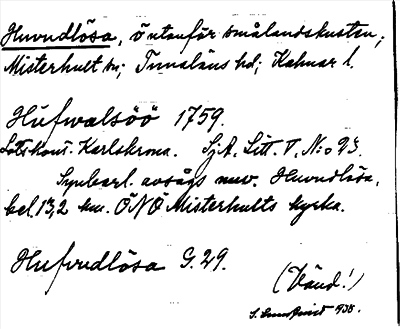 Huvudlösa, ö utanför Smålandskusten;
Misterhult sn; Tunaläns hd; Kalmar l.
Hufwalsöö 1759.
Lotskont. Karlskrona. SjA, Litt. V, N:o 93.
Synbarl. avsågs nuv. Huvudlösa,
bel. 13,2 km. ÖNÖ Misterhults kyrka.
Hufvudlösa G.29.
(Vänd!)
S. 1938.